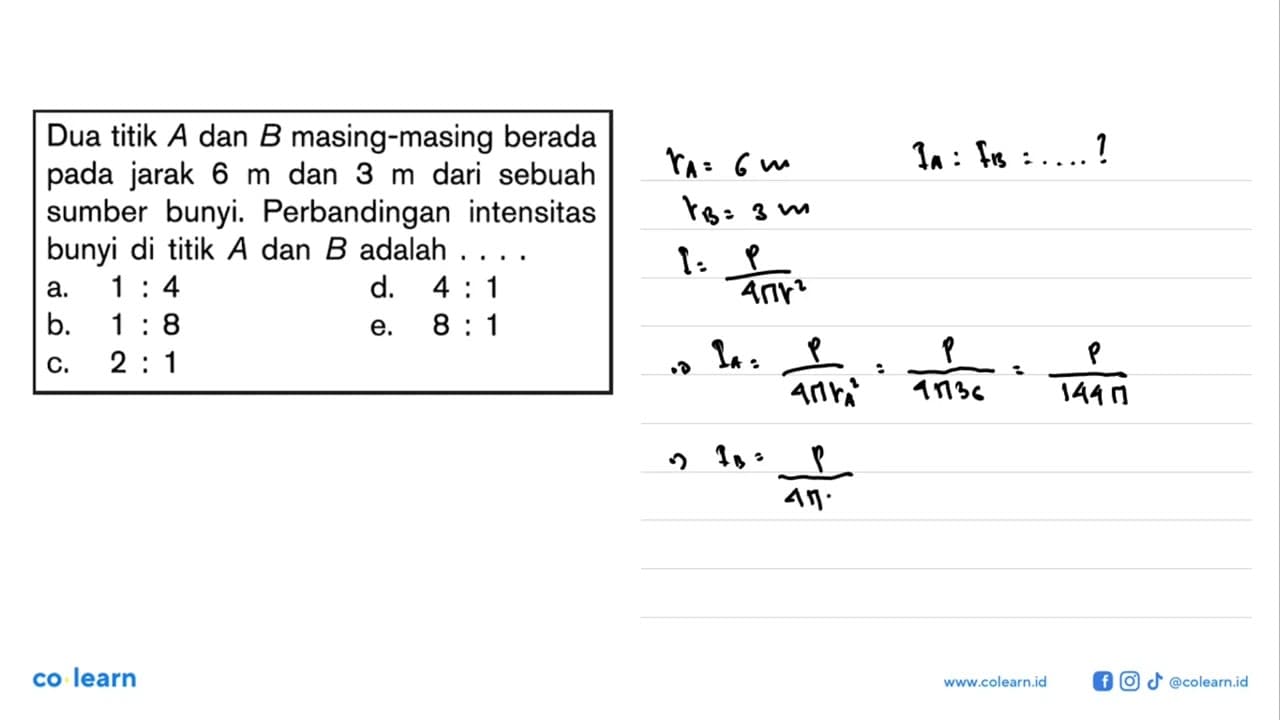 Dua titik A dan B masing-masing berada
pada jarak 6 m dan 3 m dari sebuah
sumber bunyi. Perbandingan intensitas
bunyi di titik A dan B adalah . . . .
a. 1 : 4 d. 4 : 1
b. 1 : 8 e. 8 : 1
c. 2 : 1
r_A = 6 m I_A : I_B = ....?
r_B = 3 m
I = P / 4πr²
=> I_A = P / 4πr_A² = P / 4π36 = P / 144π
=> I_B = P / 4π.
co·learn
www.colearn.id @colearn.id